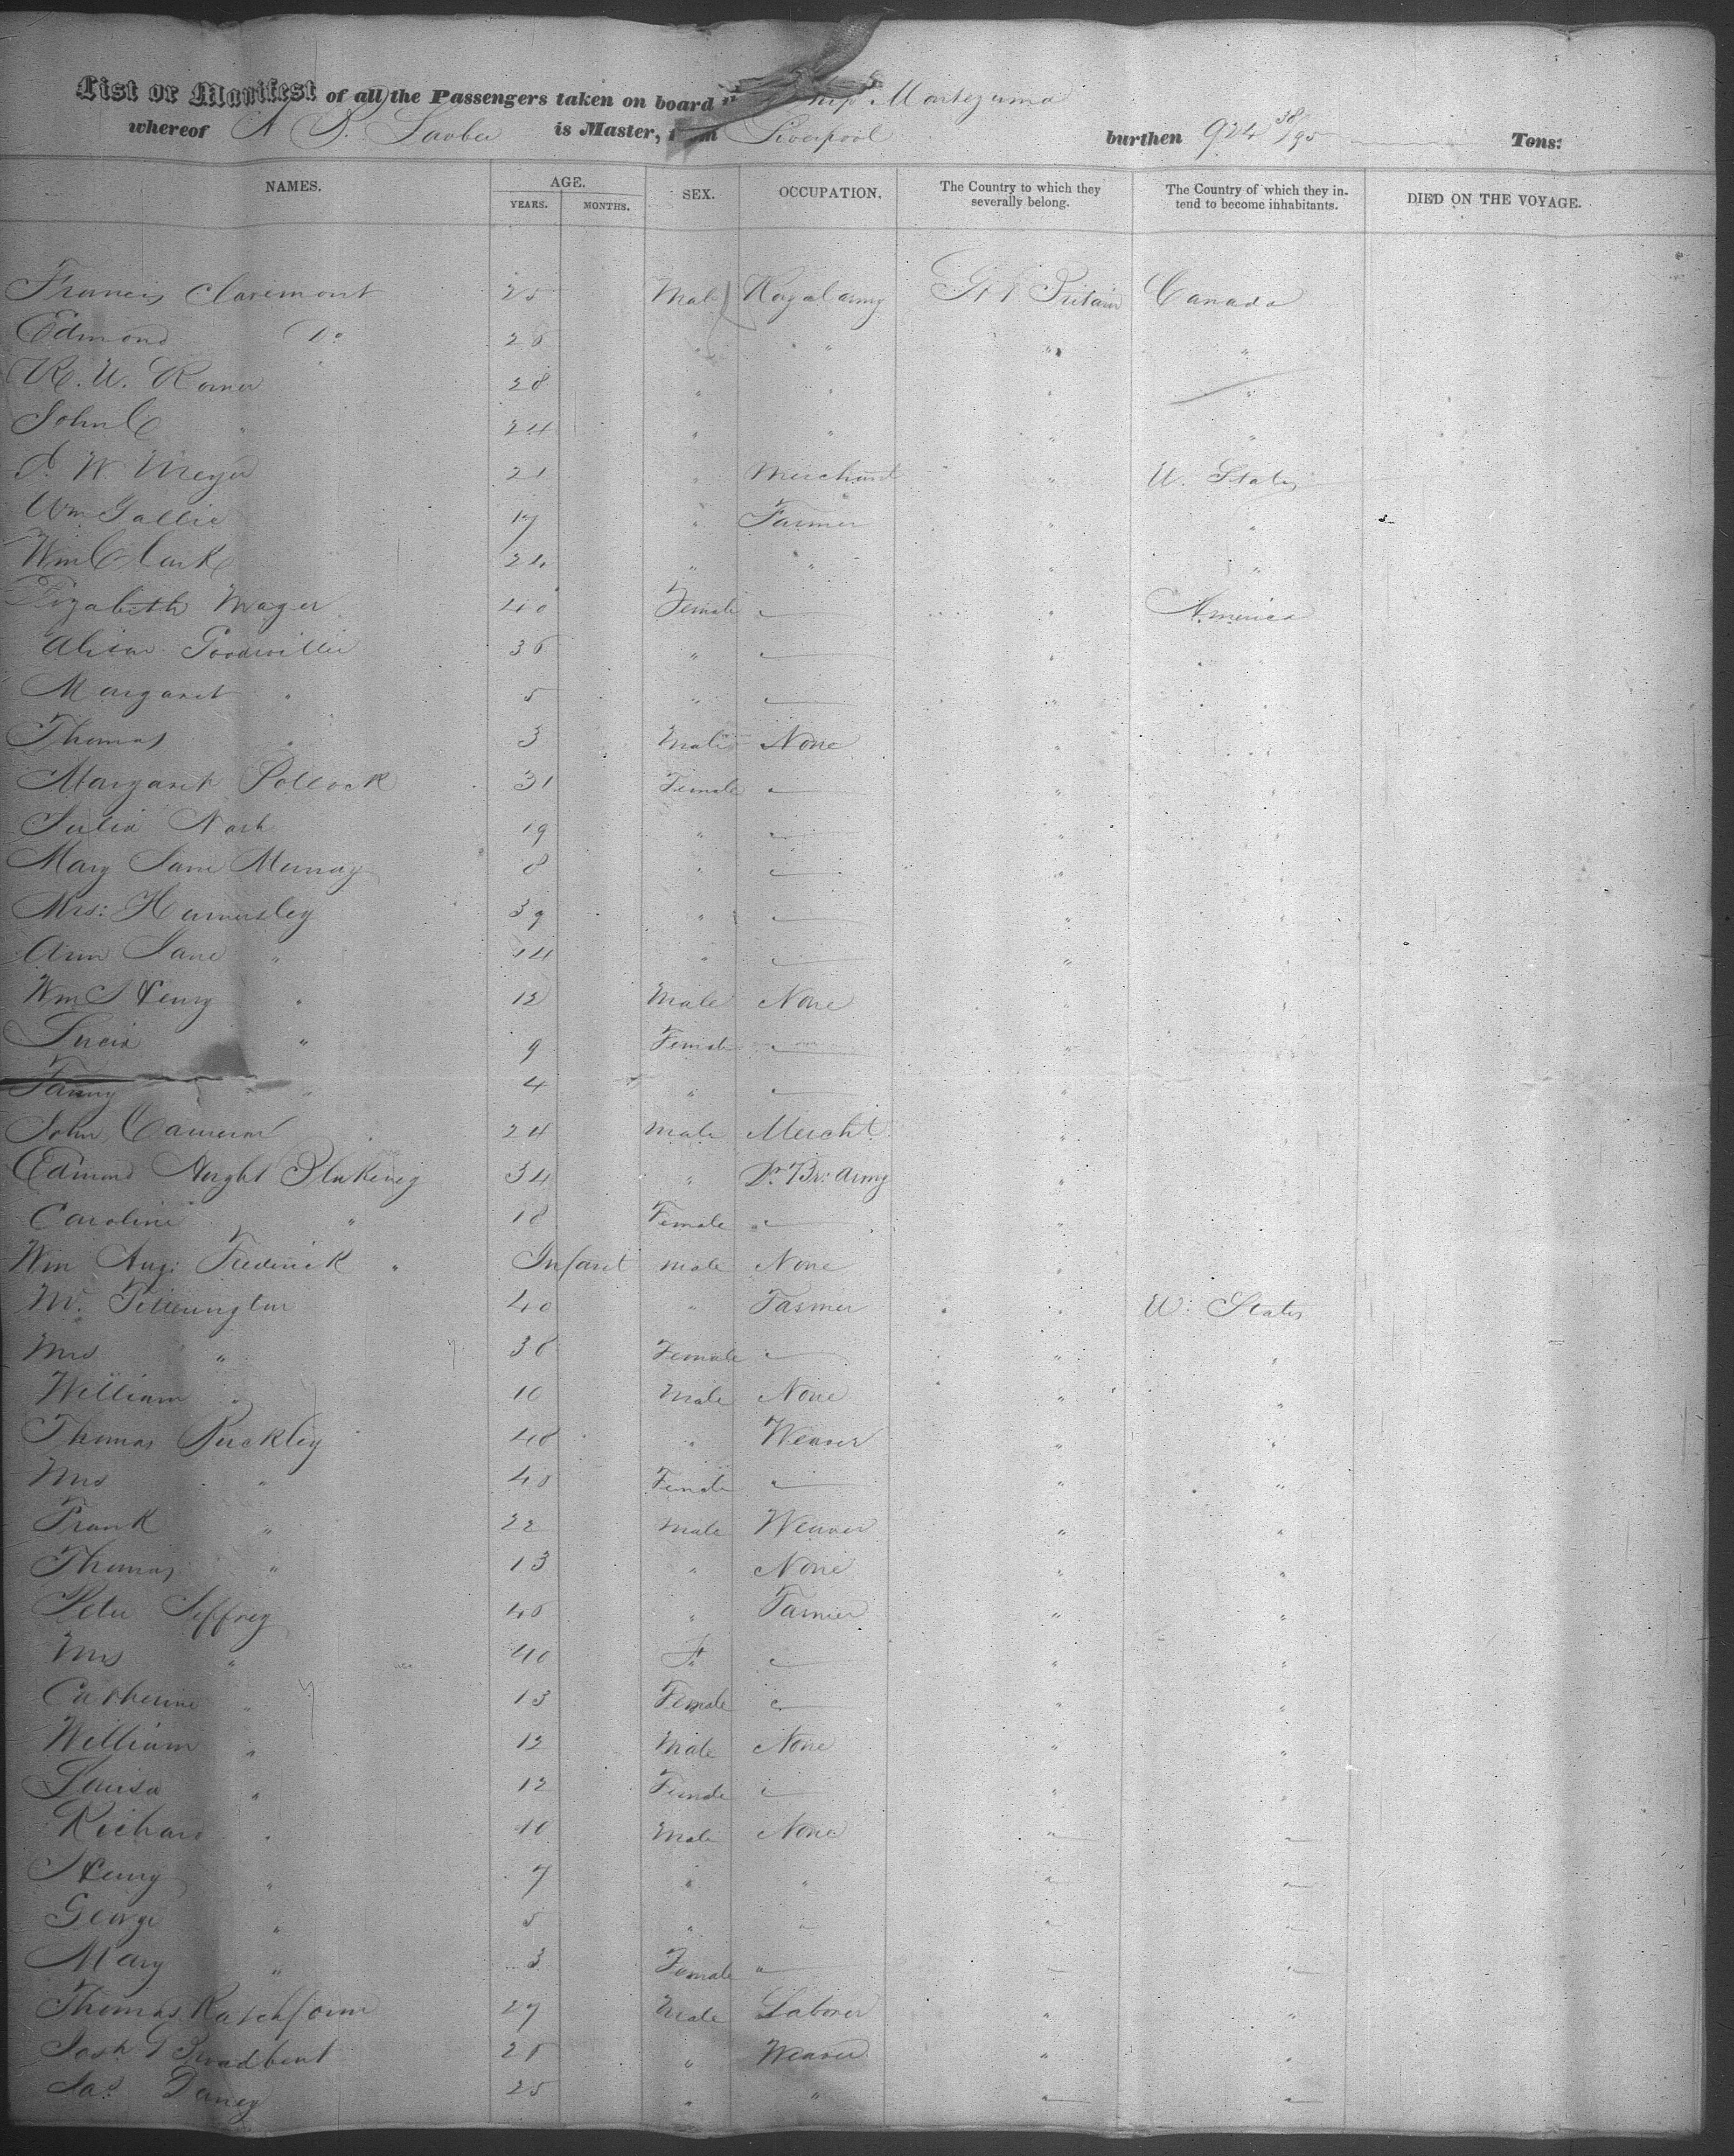 List or Manifest of all the Passengers taken on board Ship Montezuma
whereof A B. is Master, from Liverpool burthen 924 38/95 Tons:
NAMES. AGE. SEX. OCCUPATION. The Country to which they severally belong. The Country of which they in- tend to become inhabitants. DIED ON THE VOYAGE.
YEARS. MONTHS.
Francis Claremont 25 Male Royal army Gt Britain Canada
Edmond Do 26 " " " "
R. W. 28 " " " "
John C " 24 " " " "
W. Meyer 21 " Merchant " U. States
Wm Gallie 17 " Farmer " "
Wm Clark 24 " " " "
Elizabeth Mager 40 Female " " America
Alison Goodwillie 36 " " " "
Margaret " 5 " " " "
Thomas " 3 Male None " "
Margaret Pollock 31 Female " " "
Julia Nash 19 " " " "
Mary Jane Murray 8 " " " "
Mrs: Hamersley 39 " " " "
Ann Jane " 14 " " " "
Wm Henry " 12 Male None " "
Lucia " 9 Female " "
Fanny " 4 " " "
John Cameron 24 Male Mercht. "
Edmund Hught Blakeney 34 " Dr. Br: Army "
Caroline " 18 Female " "
Wm Aug: Frederick " Infant Male None "
Mr. Titterington 40 " Farmer " U: States
Mrs " 38 Female " " "
William " 10 Male None " "
Thomas Buckley 48 " Weaver " "
Mrs " 40 Female " " "
Frank " 22 Male Weaver " "
Thomas " 13 " None " "
Peter Jeffrey 46 " Farmer " "
Mrs " 40 F. " " "
Catherine " 13 Female " " "
William " 12 Male None " "
Louisa " 12 Female " " "
Richard " 10 Male None " "
Henry " 7 " " " "
George " 5 " " " "
Mary " 3 Female " " "
Thomas 27 Male Laborer " "
Josh G Broadbent 28 " Weaver " "
Jas. Daney 25 " " " "